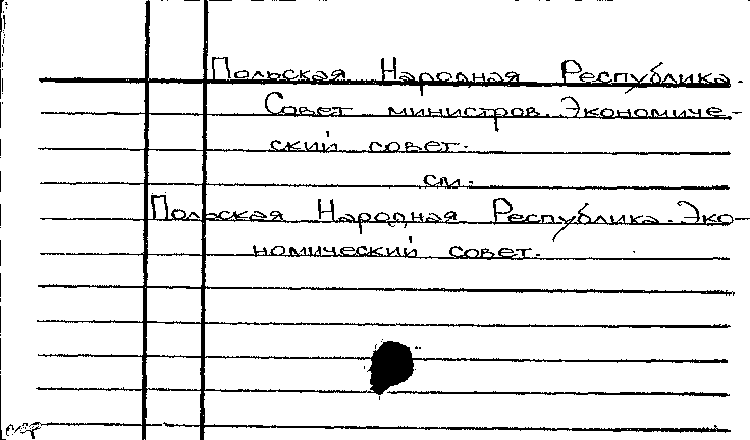 Польская Народная Республика.
Совет министров. Экономиче-
ский совет.
см.
Польская Народная Республика. Эко-
номический совет.